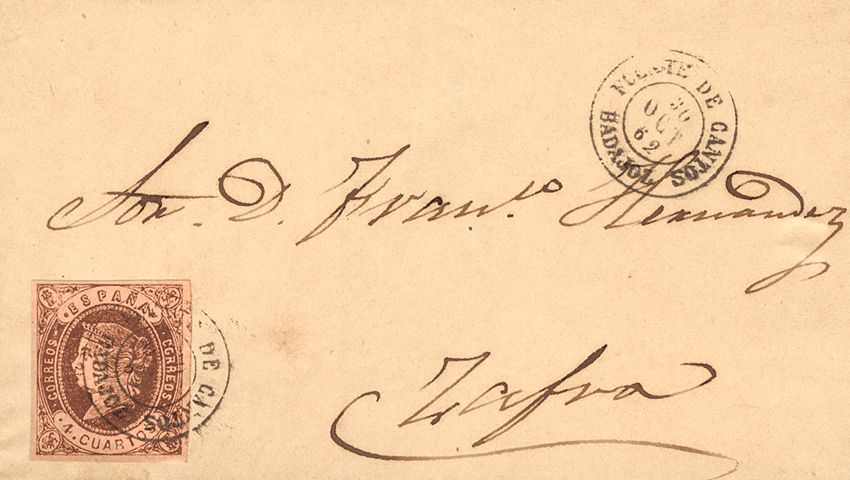 FUENTE DE CANTOS
30
OCT
62
BADAJOZ
Sor. D. Franco. Hernandez
Zafra
ESPAÑA
CORREOS
CORREOS
4 CUARTOS
DE CANTOS
BADAJOZ